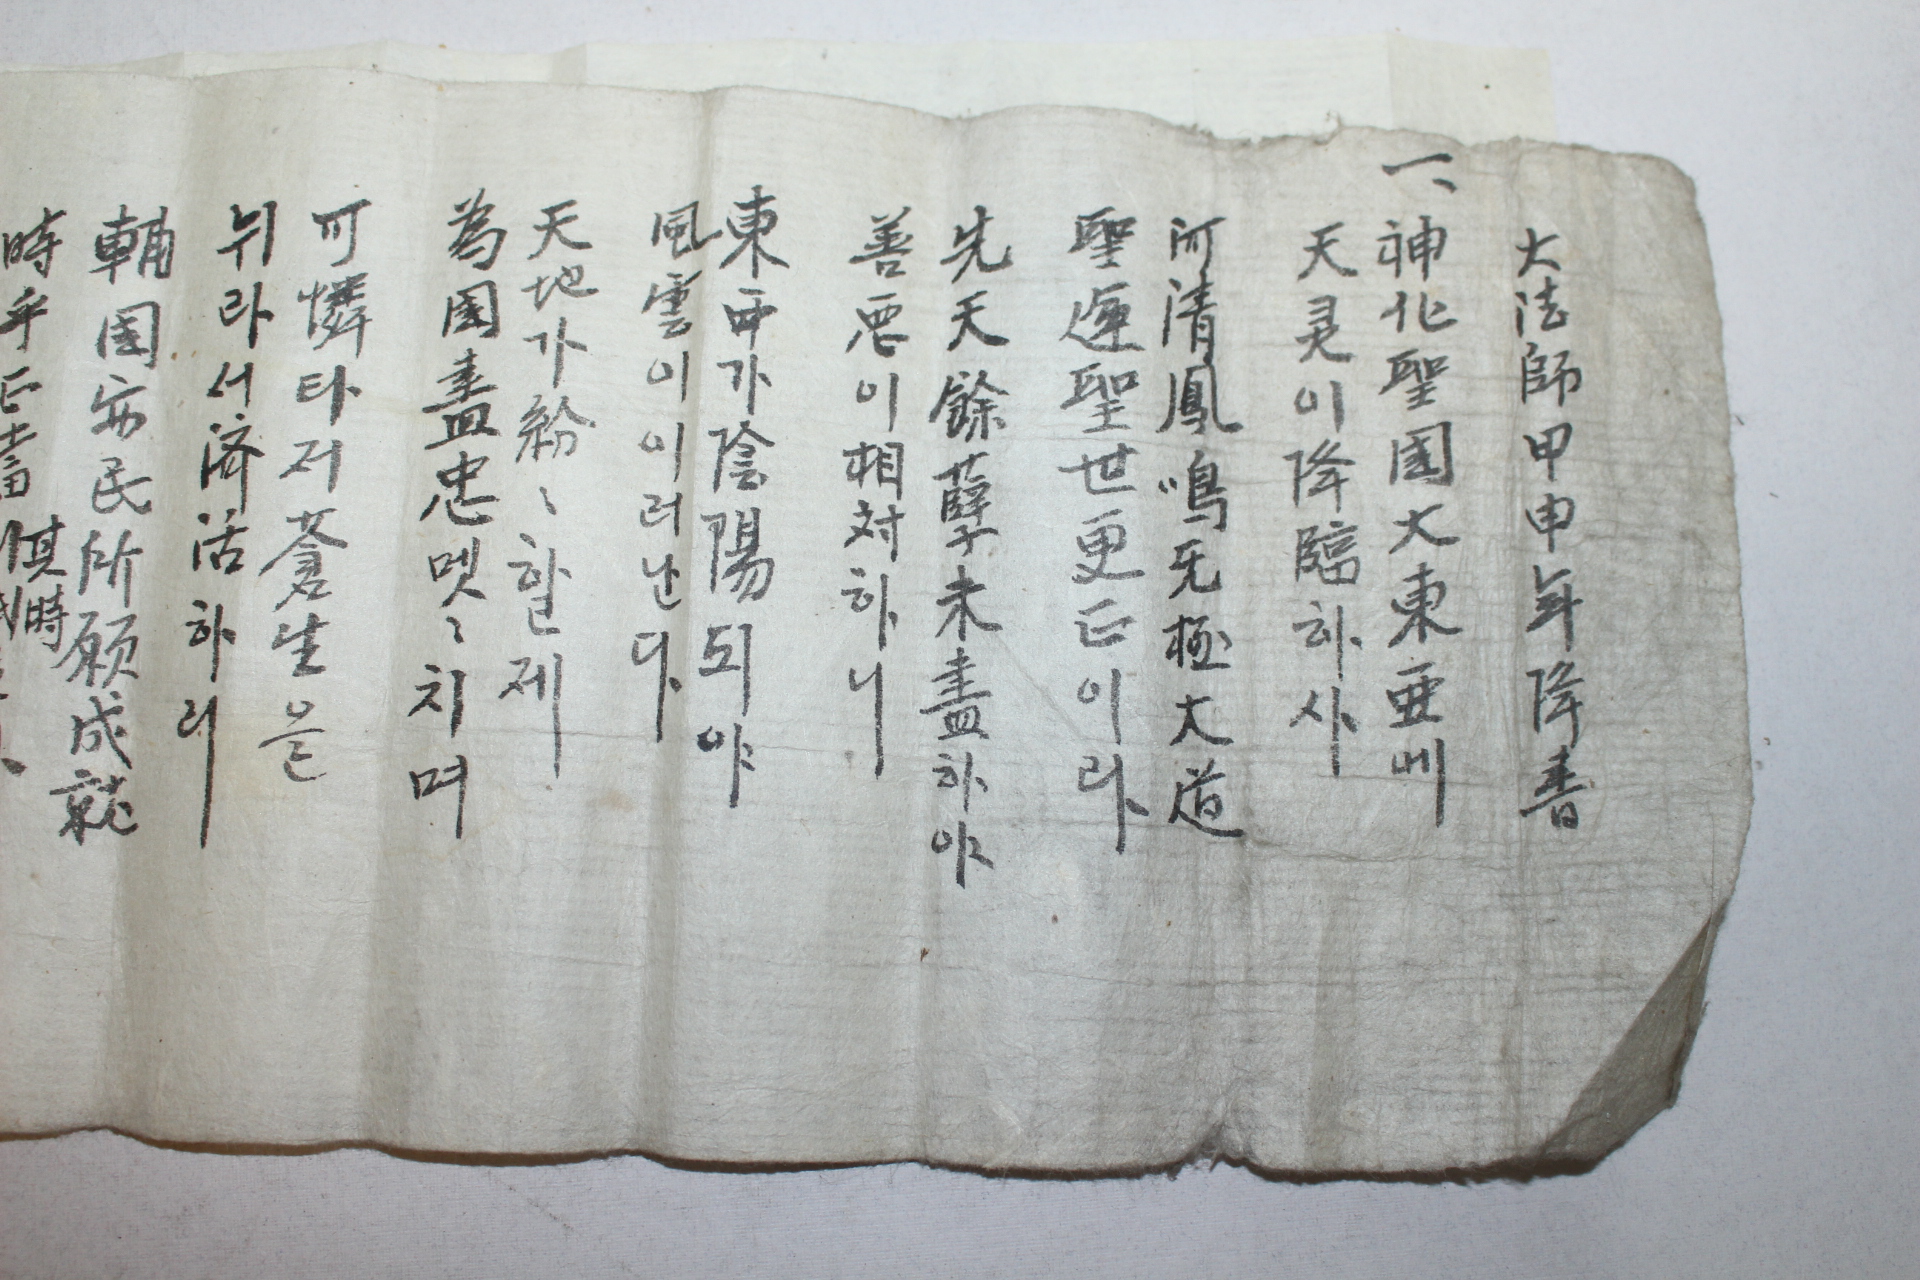 大法師甲申年降書
一、神化聖國大東亞에
天灵이降臨하사
河清鳳鳴旡極大道
聖運聖世更正이라
先天餘孽未盡하야
善惡이相対하니
東西가陰陽되야
風雲이이러난다
天地가紛〻할제
為國盡忠몟〻치며
可憐타저蒼生을
뉘라서済活하리
輔国安民所願成就
時乎正當